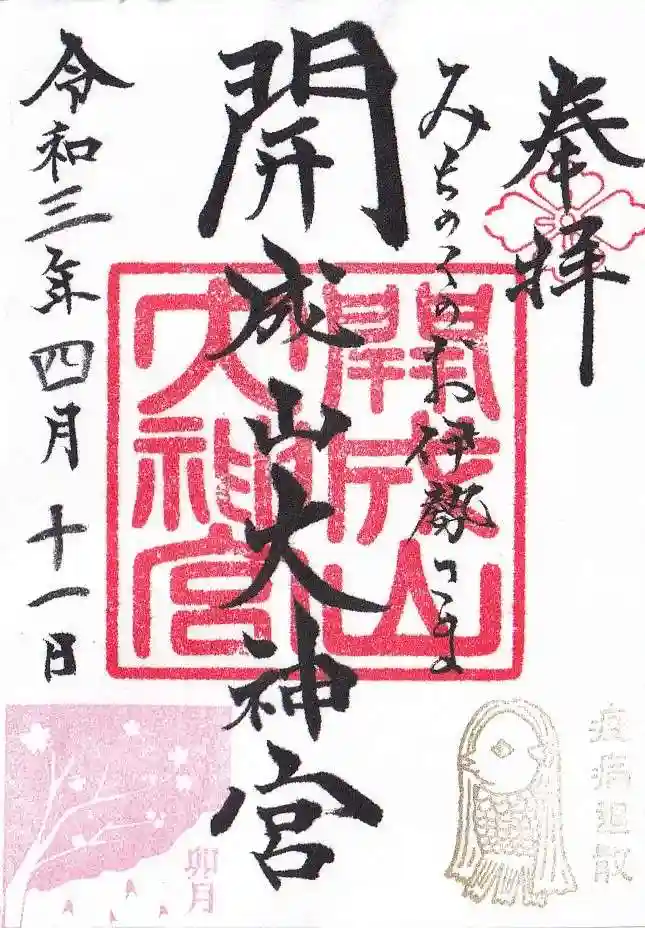 奉拝
みちのくのお伊勢さま
開成山大神宮
令和三年四月十一日
開成山
大神宮
疫病退散
卯月